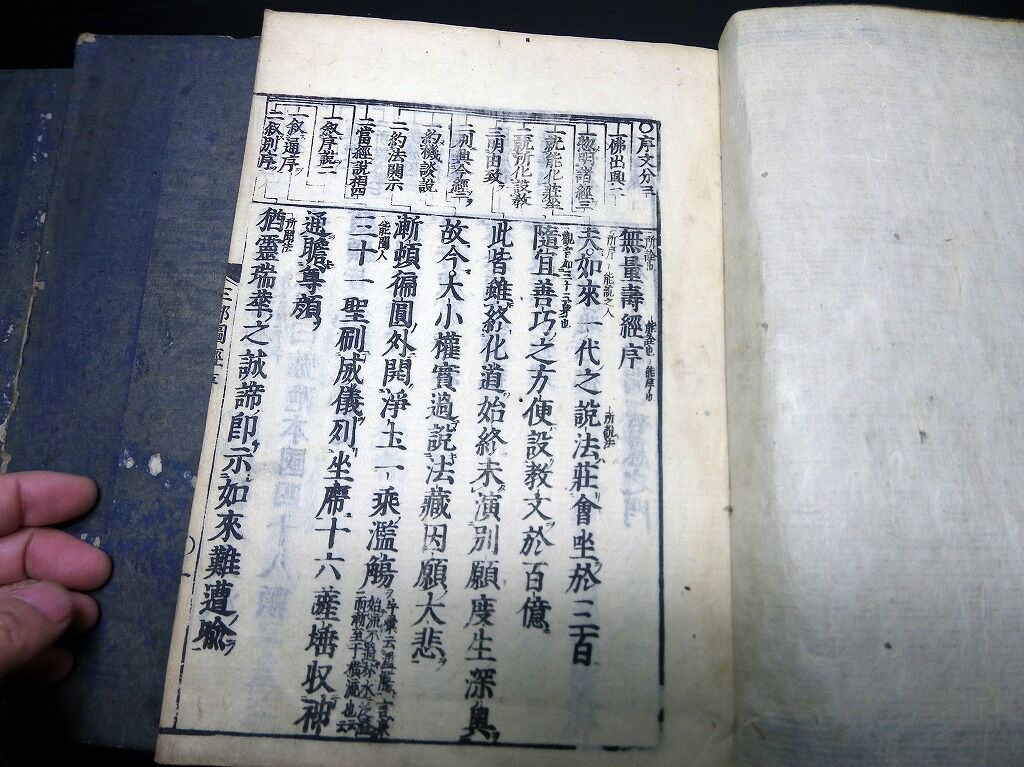 ○序文分三
一佛出興二
一惣明諸經三
一就能化莊坐
二就所化設教
三明由致
二別典今經二
一約機談説
二約法開示
二當經説相四
一叙序説二
一叙通序
二叙別序
無量壽經序
夫如來一代之説法莊會坐於三百
隨宜善巧之方便設教文於百億
此皆雖終化道始終未演別願度生深奥
故今大小權實過説法藏因願大悲
漸頓偏圓外開淨土一乘濫觴
三十一聖刷威儀列坐席十六薩埵収神
通瞻尊顔
猶靈瑞華之誠諦即示如來難遭喩